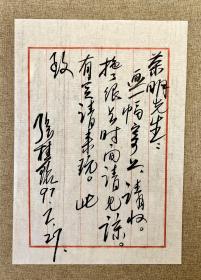 荣明先生：
画一幅寄上，请收。
拖了很长时间请见谅。
有空请来玩。此
致
张桂铭
97.2.27.